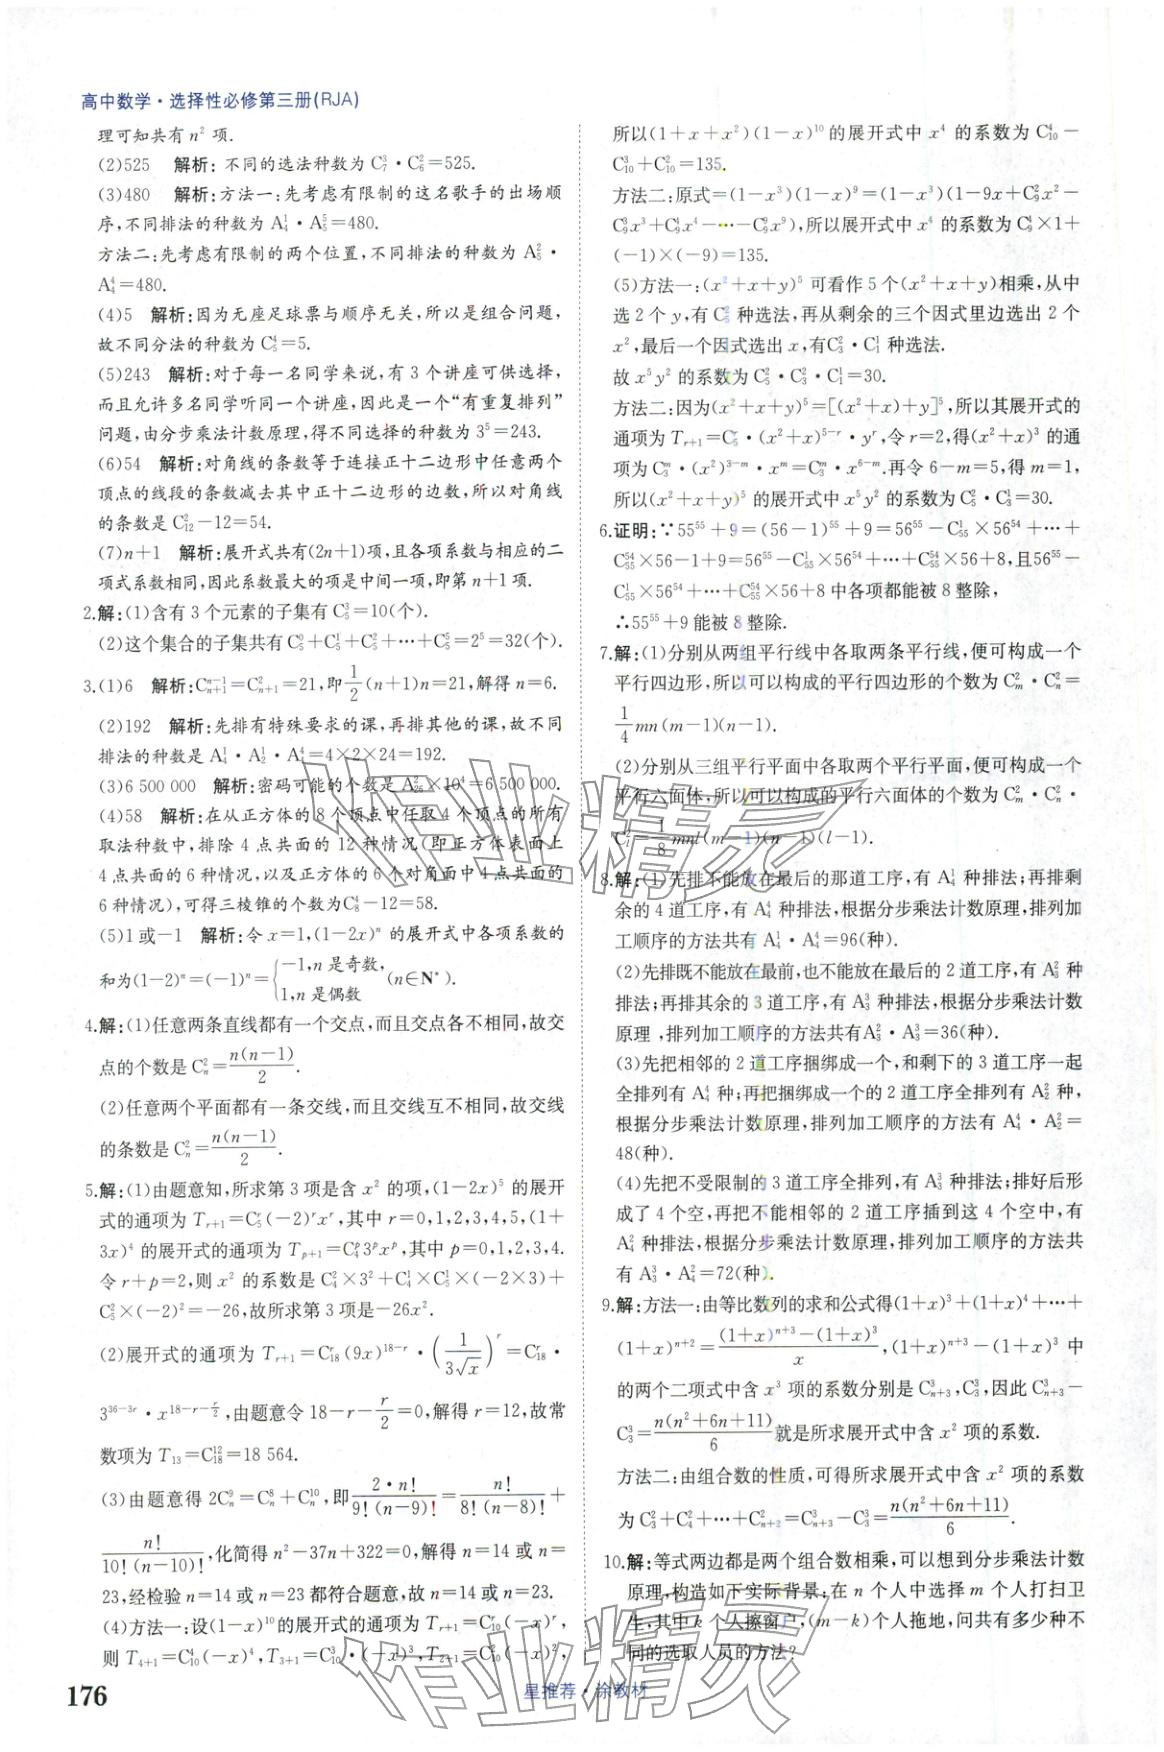 高中数学·选择性必修第三册(RJA)
理可知共有 n² 项.
(2)525 解析: 不同的选法种数为 C₇³·C₆²=525.
(3)480 解析:方法一:先考虑有限制的这名歌手的出场顺
序,不同排法的种数为 A₄¹·A₅⁵=480.
方法二:先考虑有限制的两个位置,不同排法的种数为 A₅²·
A₄⁴=480.
(4)5 解析:因为无座足球票与顺序无关,所以是组合问题,
故不同分法的种数为 C₅⁴=5.
(5)243 解析:对于每一名同学来说,有 3 个讲座可供选择,
而且允许多名同学听同一个讲座,因此是一个“有重复排列”
问题,由分步乘法计数原理,得不同选择的种数为 3⁵=243.
(6)54 解析:对角线的条数等于连接正十二边形中任意两个
顶点的线段的条数减去其中正十二边形的边数,所以对角线
的条数是 C₁₂²−12=54.
(7)n+1 解析:展开式共有(2n+1)项,且各项系数与相应的二
项式系数相同,因此系数最大的项是中间一项,即第 n+1 项.
2.解:(1)含有 3 个元素的子集有 C₅³=10(个).
(2)这个集合的子集共有 C₅⁰+C₅¹+C₅²+⋯+C₅⁵=2⁵=32(个).
3.(1)6 解析:Cₙ₊₁ⁿ⁻¹=Cₙ₊₁²=21,即 1/2 (n+1)n=21,解得 n=6.
(2)192 解析:先排有特殊要求的课,再排其他的课,故不同
排法的种数是 A₄¹·A₂¹·A₄⁴=4×2×24=192.
(3)6 500 000 解析:密码可能的个数是 A₂₆²×10⁴=6 500 000.
(4)58 解析:在从正方体的 8 个顶点中任取 4 个顶点的所有
取法种数中,排除 4 点共面的 12 种情况(即正方体表面上
4 点共面的 6 种情况,以及正方体的 6 个对角面中 4 点共面的
6 种情况),可得三棱锥的个数为C₈⁴−12=58.
(5)1 或−1 解析:令 x=1,(1−2x)ⁿ 的展开式中各项系数的
和为(1−2)ⁿ=(−1)ⁿ={−1,n 是奇数, 1,n 是偶数 (n∈N*).
4.解:(1)任意两条直线都有一个交点,而且交点各不相同,故交
点的个数是 Cₙ²=n(n−1)/2.
(2)任意两个平面都有一条交线,而且交线互不相同,故交线
的条数是 Cₙ²=n(n−1)/2.
5.解:(1)由题意知,所求第 3 项是含 x² 的项,(1−2x)⁵ 的展开
式的通项为 Tᵣ₊₁=C₅ʳ(−2)ʳxʳ,其中 r=0,1,2,3,4,5,(1+
3x)⁴ 的展开式的通项为 Tₚ₊₁=C₄ᵖ3ᵖxᵖ,其中 p=0,1,2,3,4.
令 r+p=2,则 x² 的系数是 C₄²×3²+C₄¹×C₅¹×(−2×3)+
C₅²×(−2)²=−26,故所求第 3 项是−26x².
(2)展开式的通项为 Tᵣ₊₁=C₁₈ʳ(9x)¹⁸⁻ʳ·(1/(3√x))ʳ=C₁₈ʳ·
3³⁶⁻³ʳ·x^(18−r−r/2),由题意令 18−r−r/2=0,解得 r=12,故常
数项为 T₁₃=C₁₈¹²=18 564.
(3)由题意得 2Cₙ⁹=Cₙ⁸+Cₙ¹⁰,即 2·n!/(9!(n−9)!)=n!/(8!(n−8)!)+
n!/(10!(n−10)!),化简得 n²−37n+322=0,解得 n=14 或 n=
23,经检验 n=14 或 n=23 都符合题意,故 n=14 或 n=23.
(4)方法一:设(1−x)¹⁰的展开式的通项为 Tᵣ₊₁=C₁₀ʳ(−x)ʳ,
则 T₄₊₁=C₁₀⁴(−x)⁴,T₃₊₁=C₁₀³·(−x)³,T₂₊₁=C₁₀²(−x)²,
所以(1+x+x²)(1−x)¹⁰ 的展开式中 x⁴ 的系数为 C₁₀⁴−
C₁₀³+C₁₀²=135.
方法二:原式=(1−x³)(1−x)⁹=(1−x³)(1−9x+C₉²x²−
C₉³x³+C₉⁴x⁴−⋯−C₉⁹x⁹),所以展开式中 x⁴ 的系数为 C₉⁴×1+
(−1)×(−9)=135.
(5)方法一:(x²+x+y)⁵ 可看作 5 个(x²+x+y)相乘,从中
选 2 个 y,有 C₅² 种选法,再从剩余的三个因式里边选出 2 个
x²,最后一个因式选出 x,有C₃²·C₁¹ 种选法.
故 x⁵y² 的系数为 C₅²·C₃²·C₁¹=30.
方法二:因为(x²+x+y)⁵=[(x²+x)+y]⁵,所以其展开式的
通项为 Tᵣ₊₁=C₅ʳ·(x²+x)⁵⁻ʳ·yʳ,令 r=2,得(x²+x)³ 的通
项为 C₃ᵐ·(x²)³⁻ᵐ·xᵐ=C₃ᵐ·x⁶⁻ᵐ.再令 6−m=5,得 m=1,
所以(x²+x+y)⁵ 的展开式中 x⁵y² 的系数为 C₅²·C₃¹=30.
6.证明:∵55⁵⁵+9=(56−1)⁵⁵+9=56⁵⁵−C₅₅¹×56⁵⁴+⋯+
C₅₅⁵⁴×56−1+9=56⁵⁵−C₅₅¹×56⁵⁴+⋯+C₅₅⁵⁴×56+8,且56⁵⁵−
C₅₅¹×56⁵⁴+⋯+C₅₅⁵⁴×56+8 中各项都能被 8 整除,
∴55⁵⁵+9 能被 8 整除.
7.解:(1)分别从两组平行线中各取两条平行线,便可构成一个
平行四边形,所以可以构成的平行四边形的个数为 Cₘ²·Cₙ²=
1/4 mn(m−1)(n−1).
(2)分别从三组平行平面中各取两个平行平面,便可构成一个
平行六面体,所以可以构成的平行六面体的个数为 Cₘ²·Cₙ²·
Cₗ²=1/8 mnl(m−1)(n−1)(l−1).
8.解:(1)先排不能放在最后的那道工序,有 A₄¹ 种排法;再排剩
余的 4 道工序,有 A₄⁴ 种排法,根据分步乘法计数原理,排列加
工顺序的方法共有 A₄¹·A₄⁴=96(种).
(2)先排既不能放在最前,也不能放在最后的 2 道工序,有 A₃² 种
排法;再排其余的 3 道工序,有 A₃³ 种排法,根据分步乘法计数
原理,排列加工顺序的方法共有A₃²·A₃³=36(种).
(3)先把相邻的 2 道工序捆绑成一个,和剩下的 3 道工序一起
全排列有 A₄⁴ 种;再把捆绑成一个的 2 道工序全排列有 A₂² 种,
根据分步乘法计数原理,排列加工顺序的方法有 A₄⁴·A₂²=
48(种).
(4)先把不受限制的 3 道工序全排列,有 A₃³ 种排法;排好后形
成了 4 个空,再把不能相邻的 2 道工序插到这 4 个空中,有
A₄² 种排法,根据分步乘法计数原理,排列加工顺序的方法共
有 A₃³·A₄²=72(种).
9.解:方法一:由等比数列的求和公式得(1+x)³+(1+x)⁴+⋯+
(1+x)ⁿ⁺²=((1+x)ⁿ⁺³−(1+x)³)/x,(1+x)ⁿ⁺³−(1+x)³ 中
的两个二项式中含 x³ 项的系数分别是 Cₙ₊₃³,C₃³,因此 Cₙ₊₃³−
C₃³=n(n²+6n+11)/6 就是所求展开式中含 x² 项的系数.
方法二:由组合数的性质,可得所求展开式中含 x² 项的系数
为 C₃²+C₄²+⋯+Cₙ₊₂²=Cₙ₊₃³−C₃³=n(n²+6n+11)/6.
10.解:等式两边都是两个组合数相乘,可以想到分步乘法计数
原理,构造如下实际背景:在 n 个人中选择 m 个人打扫卫
生,其中 k 个人擦窗户,(m−k)个人拖地,问共有多少种不
同的选取人员的方法?
176
星推荐·涂教材
作业精灵
作业精灵